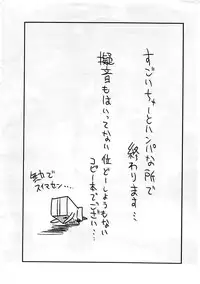 すごいちゅーとハンパな所で
終わります…
擬音もはいってない位どーしようもない
コピー本でございい…
無力で
スイマセン…